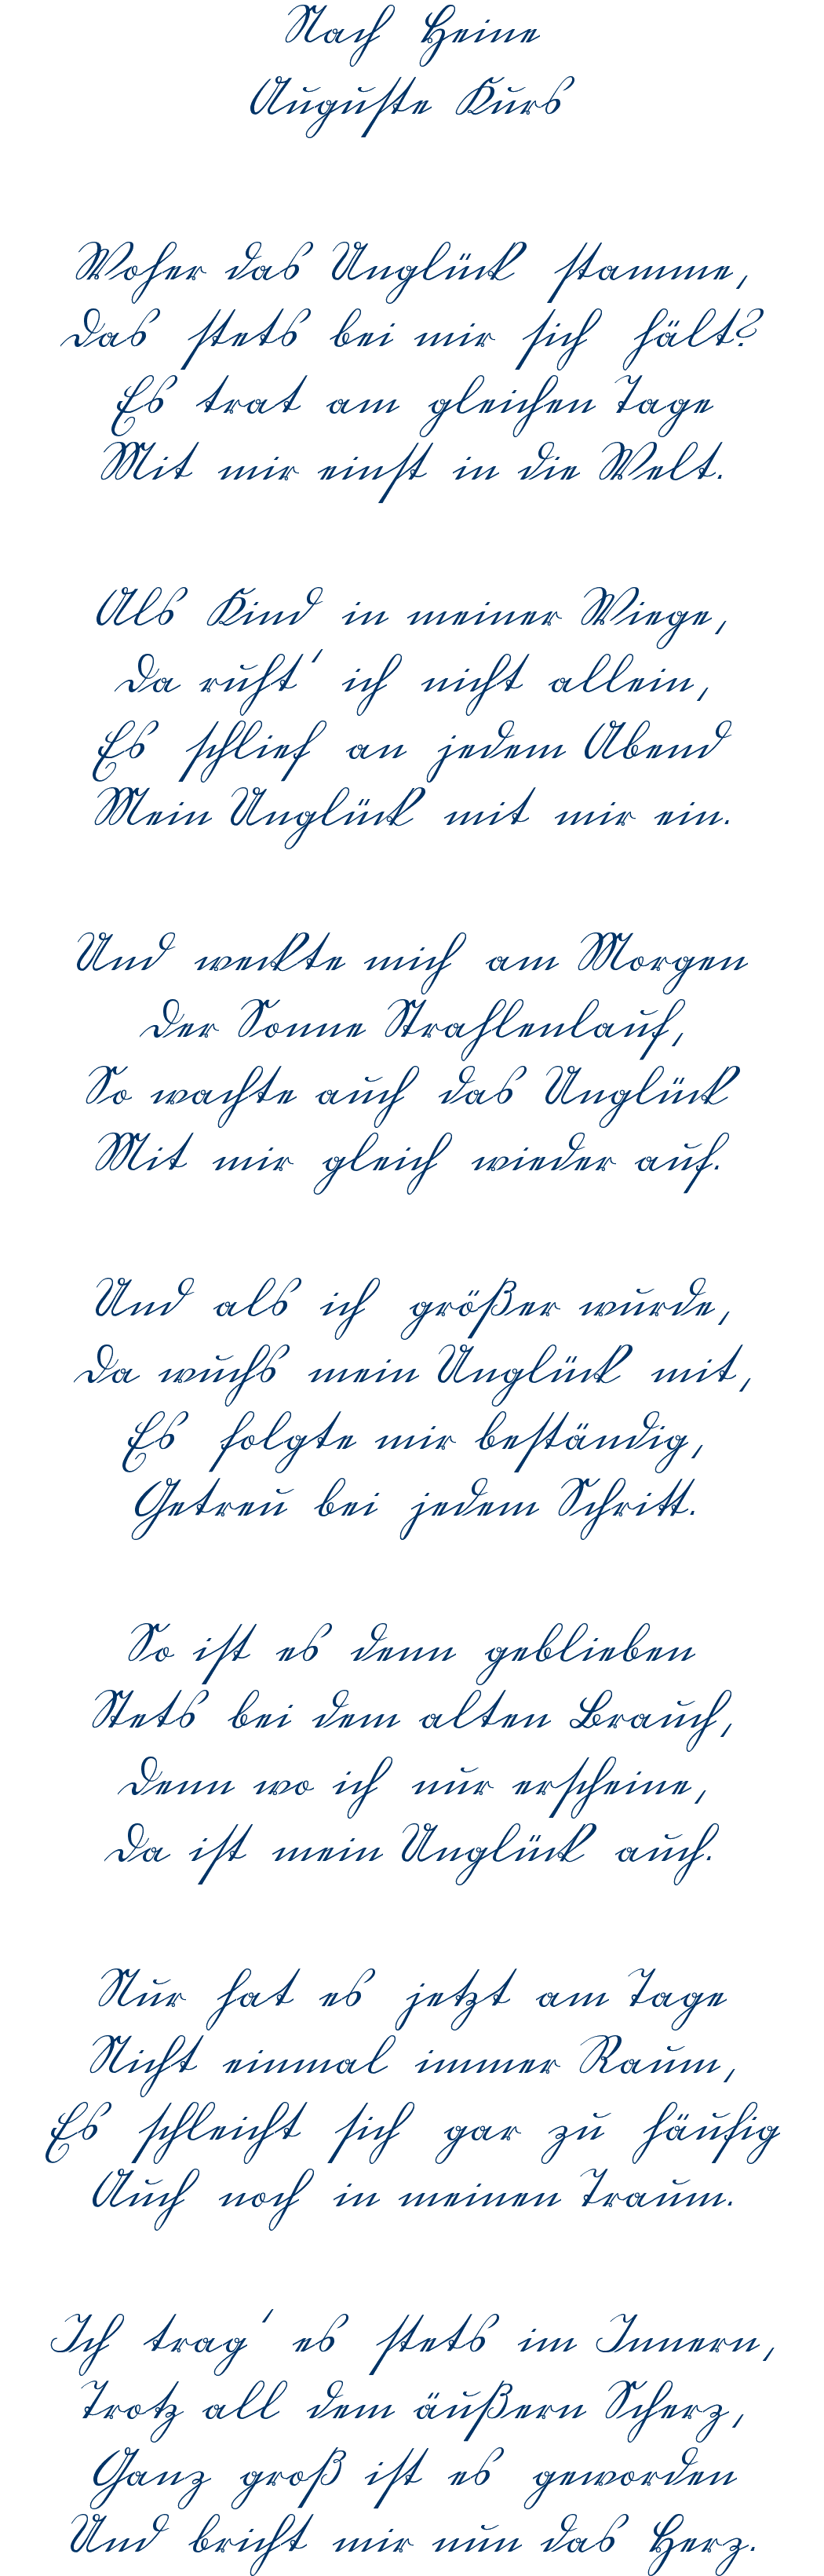 Nach Heine
Auguste Kurs
Woher das Unglück stamme,
Das stets bei mir sich hält?
Es trat am gleichen Tage
Mit mir einst in die Welt.
Als Kind in meiner Wiege,
Da ruht' ich nicht allein,
Es schlief an jedem Abend
Mein Unglück mit mir ein.
Und weckte mich am Morgen
Der Sonne Strahlenlauf,
So wachte auch das Unglück
Mit mir gleich wieder auf.
Und als ich größer wurde,
Da wuchs mein Unglück mit,
Es folgte mir beständig,
Getreu bei jedem Schritt.
So ist es denn geblieben
Stets bei dem alten Brauch,
Denn wo ich nur erscheine,
Da ist mein Unglück auch.
Nur hat es jetzt am Tage
Nicht einmal immer Raum,
Es schleicht sich gar zu häufig
Auch noch in meinen Traum.
Ich trag' es stets im Innern,
Trotz all dem äußern Scherz,
Ganz groß ist es geworden
Und bricht mir nun das Herz.